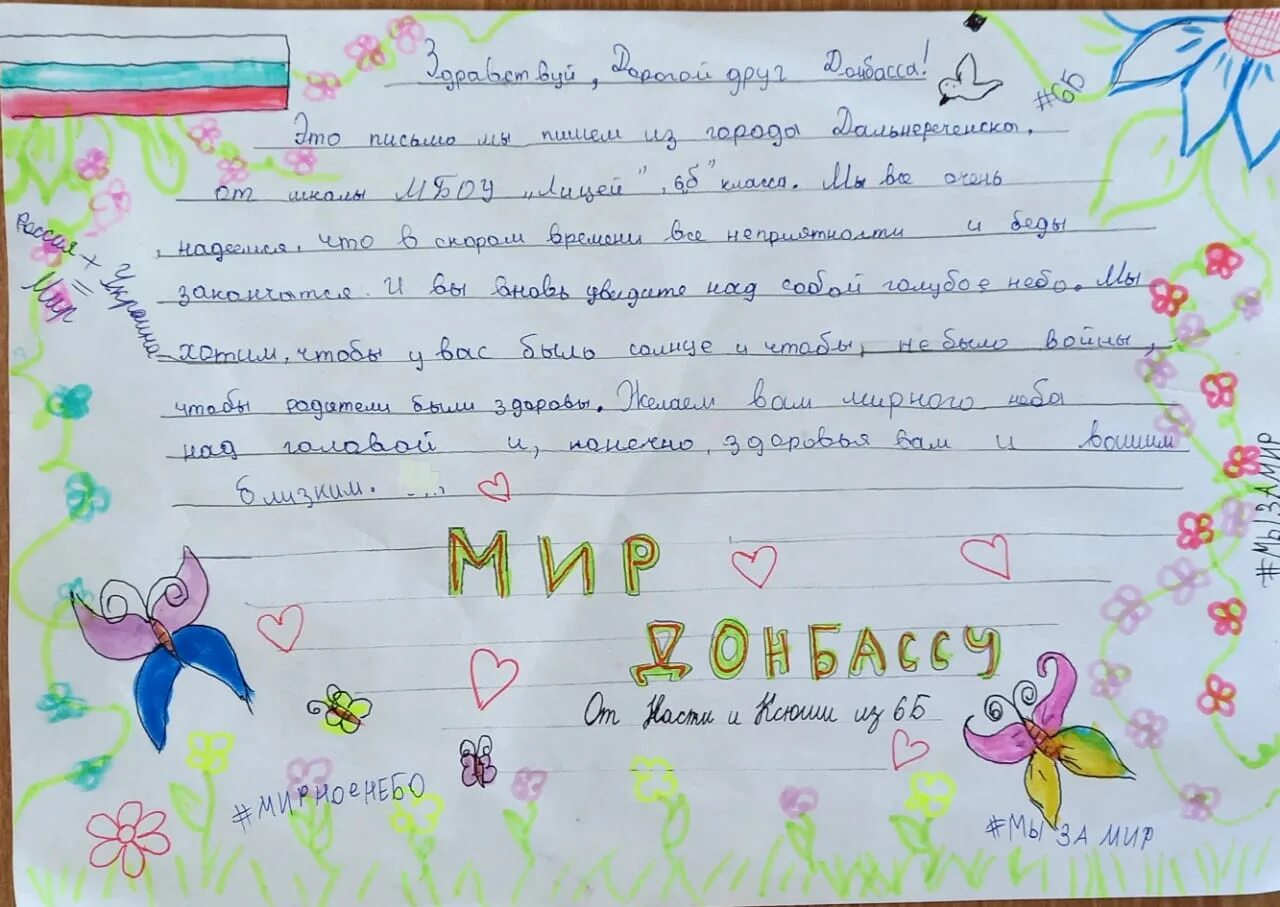 Здравствуй, Дорогой друг Донбасса!
#6Б
Это письмо мы пишем из города Дальнереченска,
от школы МБОУ „Лицей”, 6„б” класса. Мы все очень
надеемся, что в скором времени все неприятности и беды
закончатся. И вы вновь увидите над собой голубое небо. Мы
хотим, чтобы у вас было солнце и чтобы, не было войны,
чтобы родители были здоровы. Желаем вам мирного неба
над головой и, конечно, здоровья вам и вашим
близким. ....
Россия
+
Украина
=
Мир
МИР
ДОНБАССУ
От Насти и Ксюши из 6Б
#МИРНОеНЕБО
#МЫ ЗА МИР
#МЫ ЗА МИР